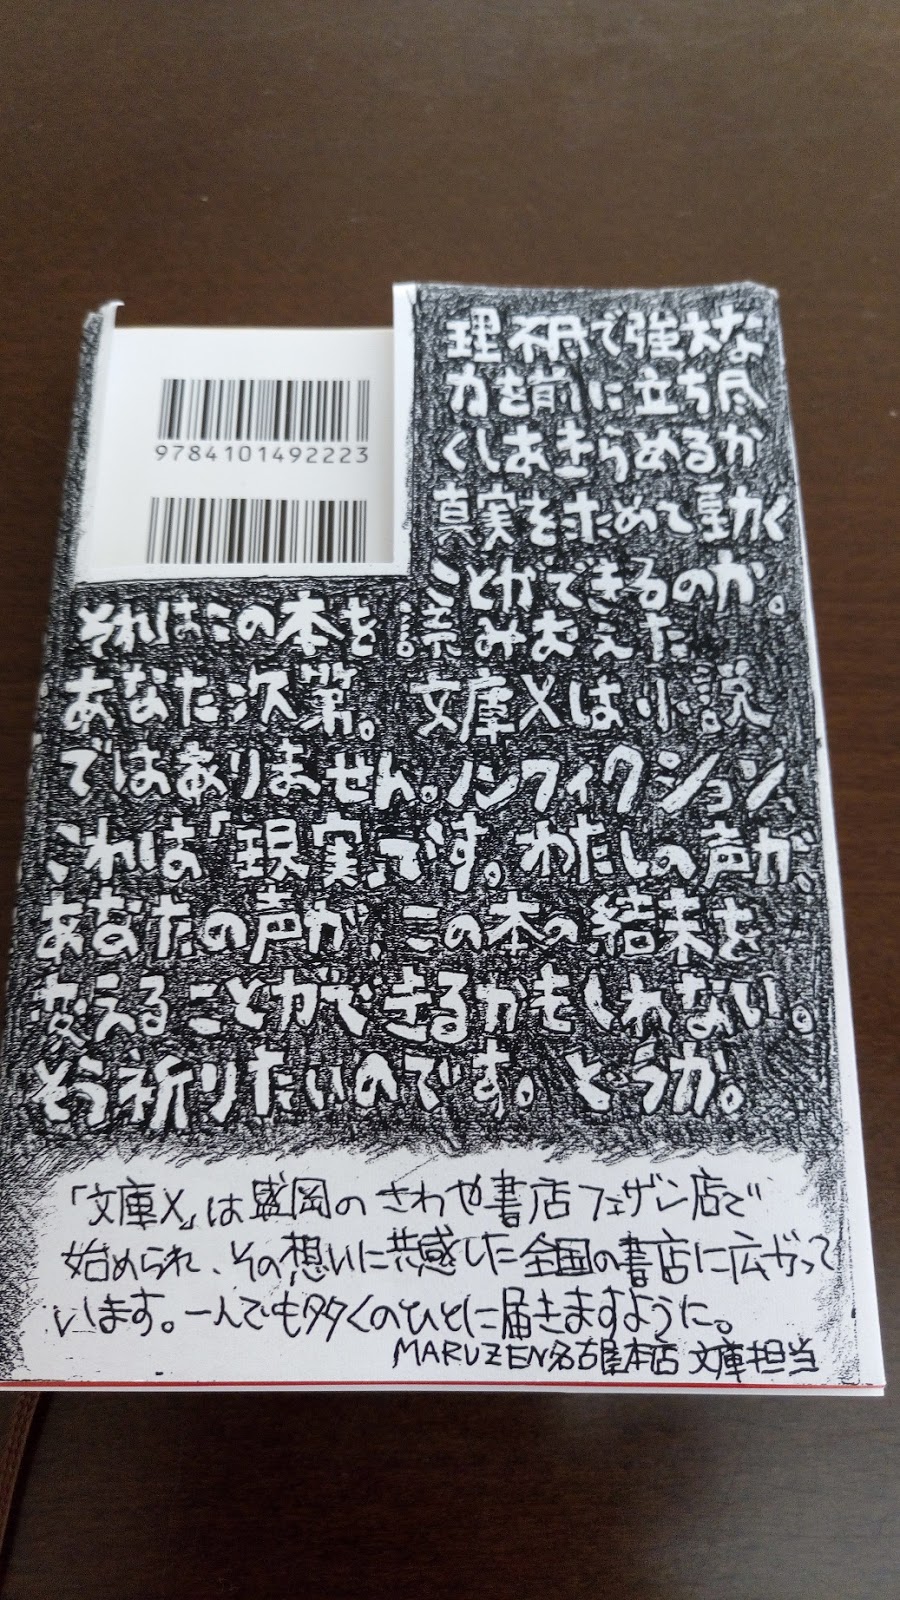 9784101492223
理不尽で強大な
力を前に立ち尽
くしあきらめるか
真実を求めて動く
ことができるのか。
それはこの本を読みおえた
あなた次第。文庫Xは小説
ではありません。ノンフィクション、
これは「現実」です。わたしの声が、
あなたの声が、この本の結末を
変えることができるかもしれない。
そう祈りたいのです。どうか。
「文庫X」は盛岡のさわや書店フェザン店で
始められ、その想いに共感した全国の書店に広がって
います。一人でも多くのひとに届きますように。
MARUZEN名古屋本店 文庫担当